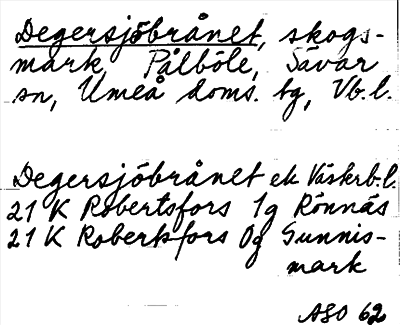 Degersjöbrånet, skogs-
mark, Pålböle, Sävar
sn, Umeå doms. tg, Vb. l.
Degersjöbrånet ek Västerb. l.
21 K Robertsfors 1g Rönnäs
21 K Robertsfors 0g Gunnis-
mark
ASO 62